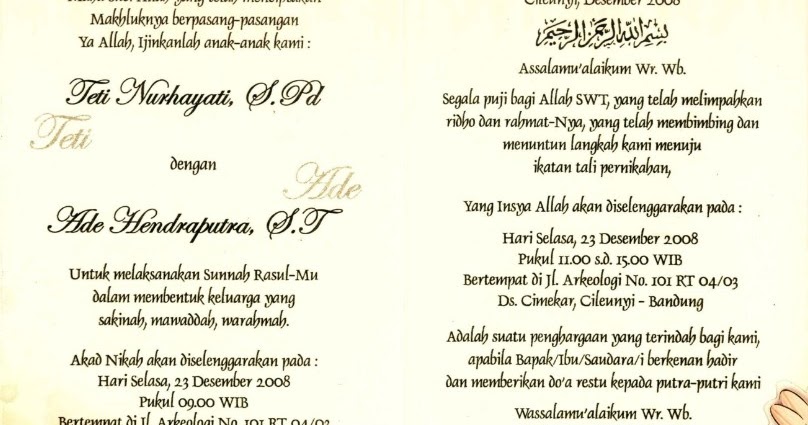 Makhluknya berpasang-pasangan
Ya Allah, Ijinkanlah anak-anak kami :
Teti Nurhayati, S.Pd
Teti
dengan
Ade
Ade Hendraputra, S.T
Untuk melaksanakan Sunnah Rasul-Mu
dalam membentuk keluarga yang
sakinah, mawaddah, warahmah.
Akad Nikah akan diselenggarakan pada :
Hari Selasa, 23 Desember 2008
Pukul 09.00 WIB
Bertempat di Jl. Arkeologi No. 101 RT 04/03
Cileunyi, Desember 2008
بسم الله الرحمن الرحيم
Assalamu'alaikum Wr. Wb.
Segala puji bagi Allah SWT, yang telah melimpahkan
ridho dan rahmat-Nya, yang telah membimbing dan
menuntun langkah kami menuju
ikatan tali pernikahan,
Yang Insya Allah akan diselenggarakan pada :
Hari Selasa, 23 Desember 2008
Pukul 11.00 s.d. 15.00 WIB
Bertempat di Jl. Arkeologi No. 101 RT 04/03
Ds. Cimekar, Cileunyi - Bandung
Adalah suatu penghargaan yang terindah bagi kami,
apabila Bapak/Ibu/Saudara/i berkenan hadir
dan memberikan do'a restu kepada putra-putri kami
Wassalamu'alaikum Wr. Wb.